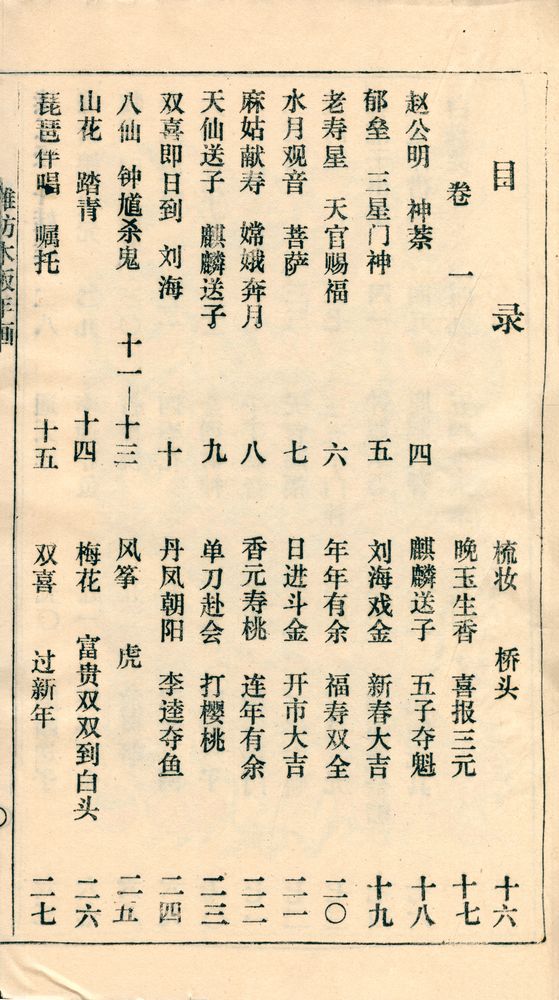 目录
卷一
赵公明 神荼 四
郁垒 三星门神 五
老寿星 天官赐福 六
水月观音 菩萨 七
麻姑献寿 嫦娥奔月 八
天仙送子 麒麟送子 九
双喜即日到 刘海 十
八仙 钟馗杀鬼 十一—十三
山花 踏青 十四
琵琶伴唱 嘱托 十五
梳妆 桥头 十六
晚玉生香 喜报三元 十七
麒麟送子 五子夺魁 十八
刘海戏金 新春大吉 十九
年年有余 福寿双全 二〇
日进斗金 开市大吉 二一
香元寿桃 连年有余 二二
单刀赴会 打樱桃 二三
丹凤朝阳 李逵夺鱼 二四
风筝 虎 二五
梅花 富贵双双到白头 二六
双喜 过新年 二七
潍坊木版年画